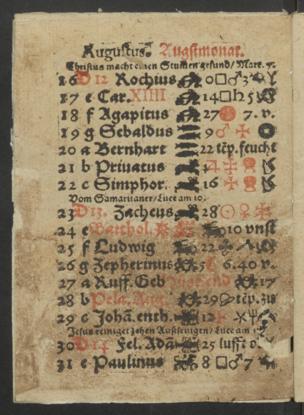 Augustus. Augstmonat.
Christus macht einen Stummen gesund/ Marc. 7.
16 D 12 Rochius 0□♂3
17 e Car. XIIII 14□♄5
18 f Agapitus 27 7. v.
19 g Sebaldus 9♂
20 a Bernhart 22 tēp. feucht
21 b Priuatus
22 c Simphor. 16
Vom Samaritaner/ Luce am 10.
23 D 13. Zacheus 28
24 e Barthol. 10 vnst
25 f Ludwig 22
26 g Zepherinus 5 6.40 v.
27 a Ruff. Geb 17
28 b Pela. Aug. 29 tēp.
29 c Johā. enth.
Jesus reiniget zehen Aussetzigen/ Luce am 17
30 D 14 Fel. Adā 25 lufft
31 e Paulinus 8 □♂ 7